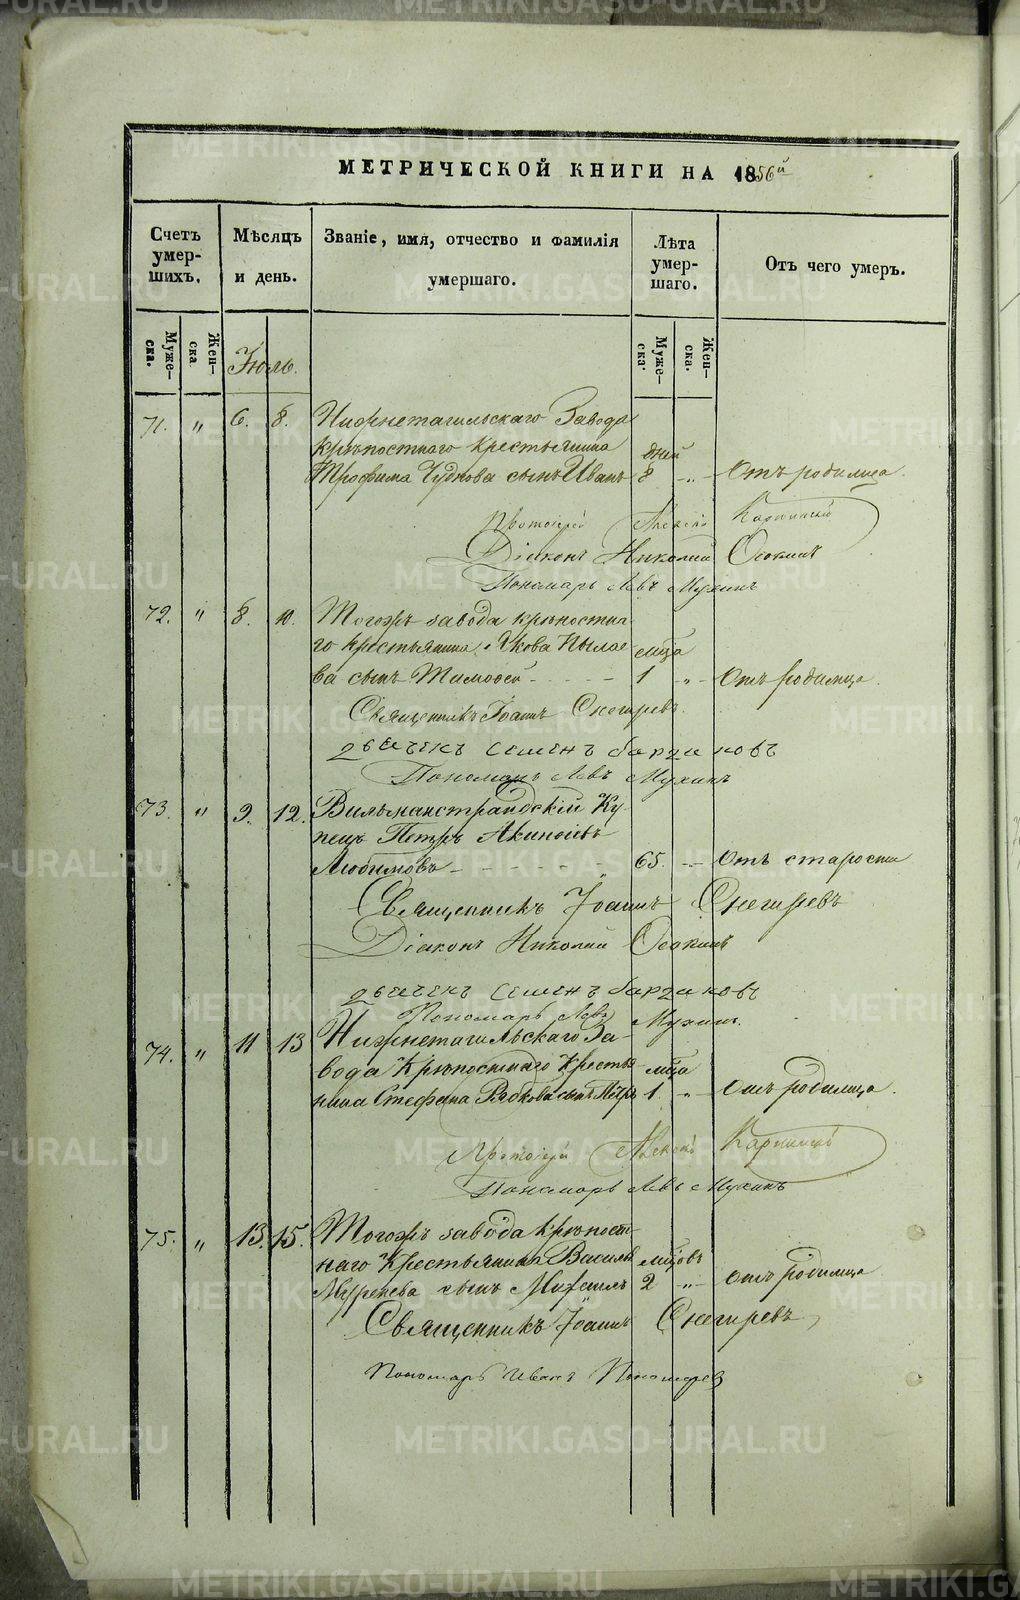 МЕТРИЧЕСКОЙ КНИГИ НА 1856й
Счетъ умер-шихъ.
Мѣсяцъ и день.
Званіе, имя, отчество и фамилія умершаго.
Лѣта умер-шаго.
Отъ чего умеръ.
Муже-ска.
Жен-ска
Муже-ска.
Жен-ска.
Іюль.
71. " 6. 8. Нижнетагильскаго Завода
крѣпостнаго крестьянина дней
Трофима Чудкова сынъ Иванъ 8 " Отъ родимца.
Протоіерей Карпинскій
Діаконъ Николай Осокинъ
Пономарь Левъ Мухинъ
72. " 8. 10. Тогожъ завода крѣпостна-
го крестьянина Якова мѣца
ва сынъ Тимофей 1 " Отъ родимца.
Священникъ Іоаннъ Снегиревъ.
дьячекъ Семенъ бардаковъ
Пономарь Левъ Мухинъ
73. " 9. 12. Вильманстрандскій Ку-
пецъ Петръ Акинфіевъ
Любимовъ 65. " Отъ старости
Священникъ Іоаннъ Снегиревъ
Діаконъ Николай Осокинъ
дьячекъ Семенъ бардаковъ
Пономарь Левъ Мухинъ.
74. " 11 13 Нижнетагильскаго За-
вода Крѣпостнаго Крестья мѣца
нина Стефана Рядкова сынъ Петръ 1. " отъ родимца.
Протоіерей Карпинскій
Пономарь Левъ Мухинъ
75. " 13. 15. Тогожъ завода крѣпост-
наго Крестьянина Василья мѣцовъ
сынъ Михаилъ 2 " отъ родимца
Священникъ Іоаннъ Снегиревъ,
Пономарь Иванъ Пономарев
METRIKI.GASO-URAL.RU